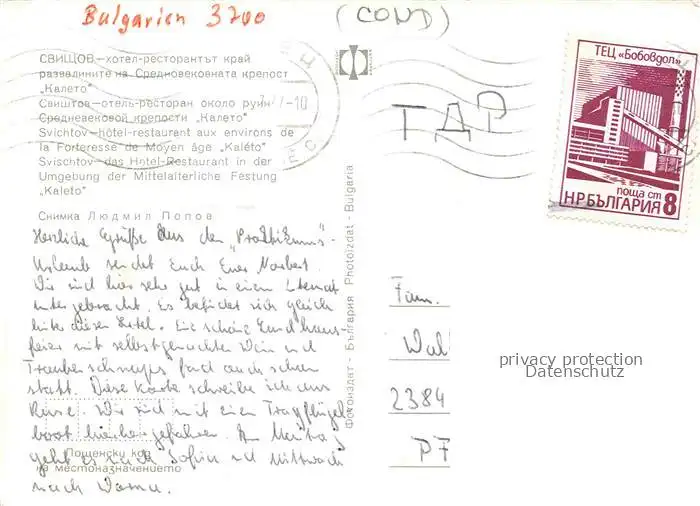 Bulgarien 3700
(COND)
СВИЩОВ—хотел-ресторантът край
развалините на Средновековната крепост
„Калето"
Свиштов—отель-ресторан около руин
Средневековой крепости „Калето"
Svichtov—hôtel-restaurant aux environs de
la Forteresse de Moyen âge „Kaléto"
Svischtov—das Hotel-Restaurant in der
Umgebung der Mittelalterliche Festung
„Kaleto"
Снимка Людмил Попов
Herzliche Grüße aus dem „Praktikums"-
Urlaub sendet Euch Euer Norbert.
Wir sind hier sehr gut in einem Internat
untergebracht. Es befindet sich gleich
hinter diesem Hotel. Eine schöne
feier mit selbstgemachten Wein und
Traubenschnaps fand auch schon
statt. Diese Karte schreibe ich aus
Russe. Wir sind mit einem Tragflügel-
boot hierher gefahren. Am Montag
geht es nach Sofia und Mittwoch
nach Varna.
Пощенски код
на местоназначението
Фотоиздат - България Photoizdat - Bulgaria
ТЕЦ „Бобовдол"
поща ст
НР БЪЛГАРИЯ 8
-10
ГДР
Fam.
Wal
2384
PF
privacy protection
Datenschutz